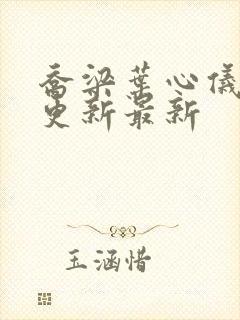 乔梁葉心儀
更新最新
玉涵惜